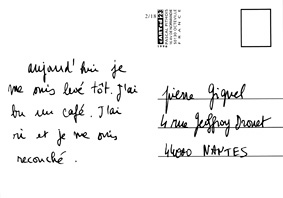 aujourd'hui je
me suis levé tôt. J'ai
bu un café. J'ai
ri et je me suis
recouché.
2/18
FRANCE
Pierre Giquel
4 rue Geoffroy Drouet
44000 NANTES